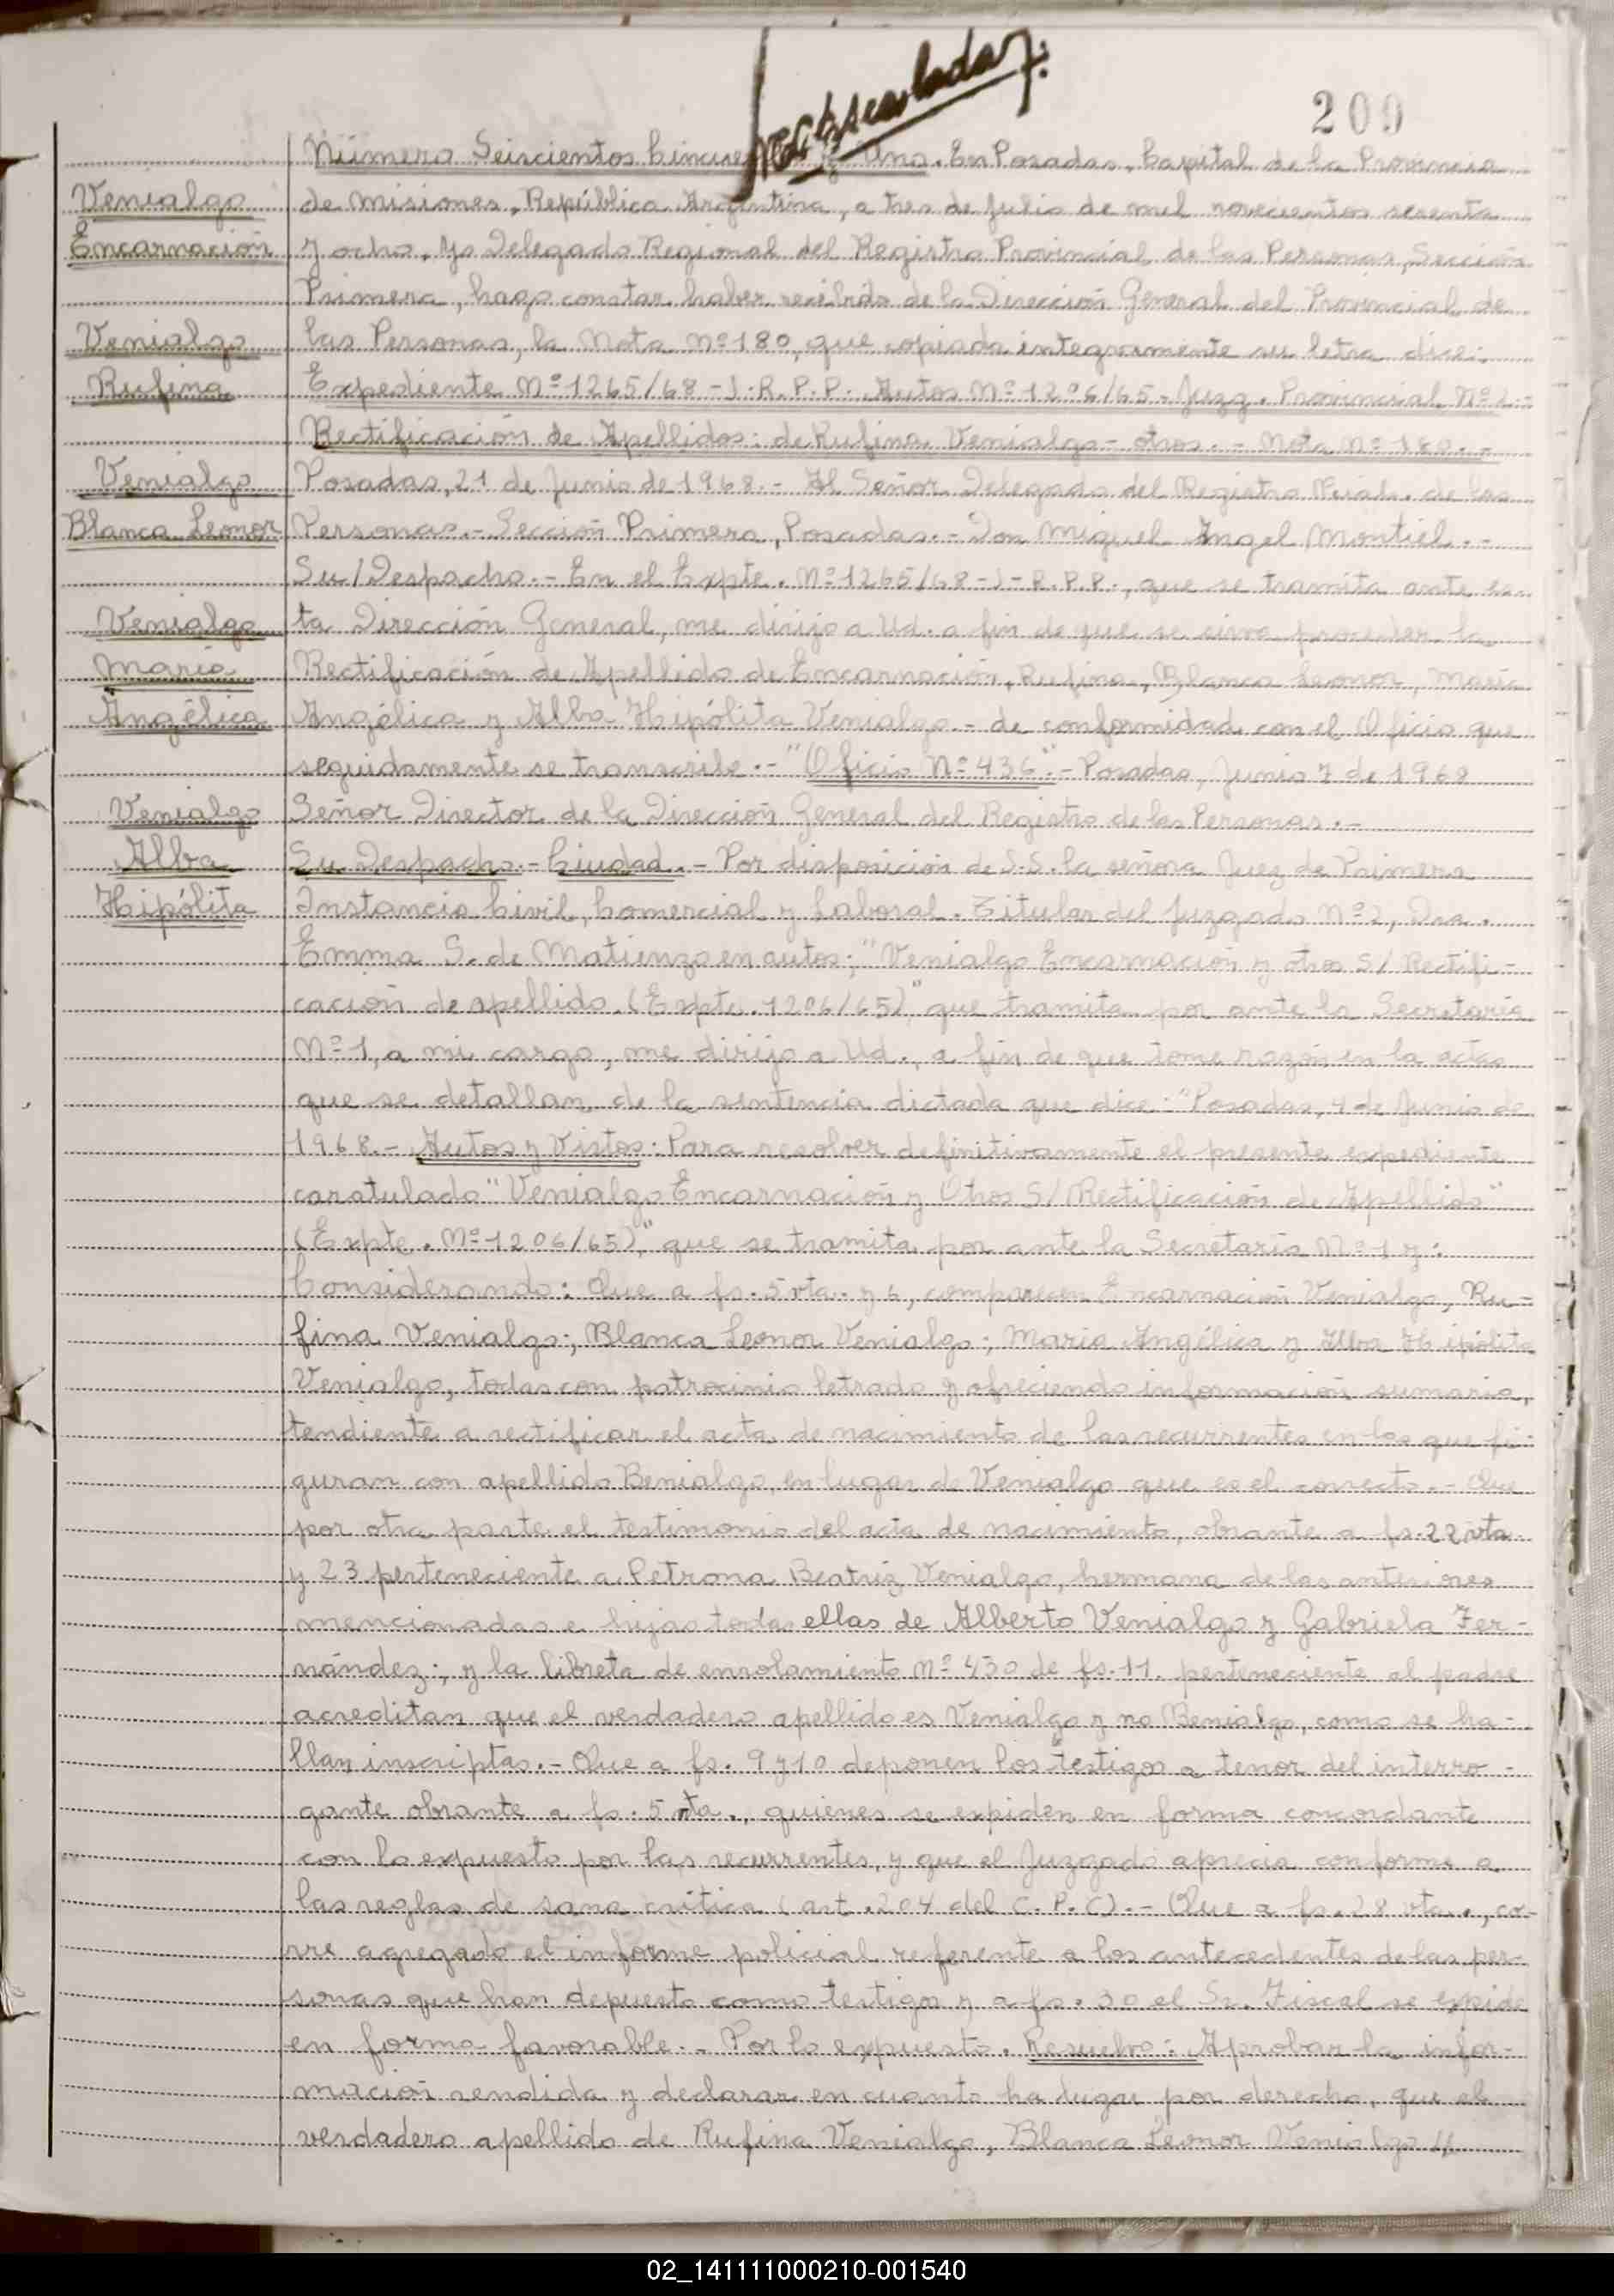 209
Venialgo
Encarnación
Venialgo
Rufina
Venialgo
Blanca Leonor
Venialgo
María
Angélica
Venialgo
Alba
Hipólita
Número Seiscientos Cincuenta y Uno. En Posadas, Capital de la Provincia
de Misiones, República Argentina, a tres de Julio de mil novecientos sesenta
y ocho, yo Delegado Regional del Registro Provincial de las Personas, Sección
Primera, hago constar haber recibido de la Dirección General del Provincial de
las Personas, la Nota Nº 180, que copiada integramente su letra dice:
Expediente Nº 1265/68 - J. R. P. P. Autos Nº 1206/65. Juzg. Provincial Nº 2.-
Rectificación de Apellidos: de Rufina Venialgo - otros. - Nota Nº 180. -
Posadas, 21 de Junio de 1968. - Al Señor Delegado del Registro Pcial. de las
Personas. - Sección Primera, Posadas. - Don Miguel Angel Montiel. -
Su/Despacho. - En el Expte. Nº 1265/68 - J - R. P. P., que se tramita ante es-
ta Dirección General, me dirijo a Ud. a fin de que se sirva proceder la
Rectificación de Apellido de Encarnación, Rufina, Blanca Leonor, María
Angélica y Alba Hipólita Venialgo - de conformidad con el Oficio que
seguidamente se transcribe. - "Oficio Nº 436". - Posadas, Junio 7 de 1968
Señor Director de la Dirección General del Registro de las Personas. -
Su Despacho. - Ciudad. - Por disposición de S.S. la señora Juez de Primera
Instancia Civil, Comercial y Laboral. Titular del Juzgado Nº 2, Dra.
Emma S. de Matienzo en autos: "Venialgo Encarnación y otros S/ Rectifi-
cación de apellido. (Expte. 1206/65)" que tramita por ante la Secretaría
Nº 1, a mi cargo, me dirijo a Ud., a fin de que tome razón en la actas
que se detallan de la sentencia dictada que dice: "Posadas, 4 de Junio de
1968. - Autos y Vistos: Para resolver definitivamente el presente expediente
caratulado "Venialgo Encarnación y Otros S/ Rectificación de Apellido"
(Expte. Nº 1206/65)," que se tramita por ante la Secretaría Nº 1 y:
Considerando: Que a fs. 5 vta. y 6, comparecen Encarnación Venialgo, Ru-
fina Venialgo; Blanca Leonor Venialgo; María Angélica y Alba Hipólita
Venialgo, todas con patrocinio letrado y ofreciendo información sumaria,
tendiente a rectificar el acta de nacimiento de las recurrentes en las que fi-
guran con apellido Benialgo, en lugar de Venialgo que es el correcto. - Que
por otra parte el testimonio del acta de nacimiento, obrante a fs. 22 vta
y 23 perteneciente a Petrona Beatriz Venialgo, hermana de las anteriores
mencionadas e hijas todas ellas de Alberto Venialgo y Gabriela Fer-
nández; y la libreta de enrolamiento Nº 430 de fs. 11. perteneciente al padre
acreditan que el verdadero apellido es Venialgo y no Benialgo, como se ha-
llan inscriptas. - Que a fs. 9 y 10 deponen los testigos a tenor del interro-
gante obrante a fs. 5 vta., quienes se expiden en forma concordante
con lo expuesto por las recurrentes, y que el Juzgado aprecia conforme a
las reglas de sana crítica (art. 204 del C. P. C). - Que a fs. 28 vta., co-
rre agregado el informe policial referente a los antecedentes de las per-
sonas que han depuesto como testigos y a fs. 30 el Sr. Fiscal se expide
en forma favorable. - Por lo expuesto. Resuelvo: Aprobar la infor-
mación rendida y declarar en cuanto ha lugar por derecho, que el
verdadero apellido de Rufina Venialgo, Blanca Leonor Venialgo //
02_141111000210-001540